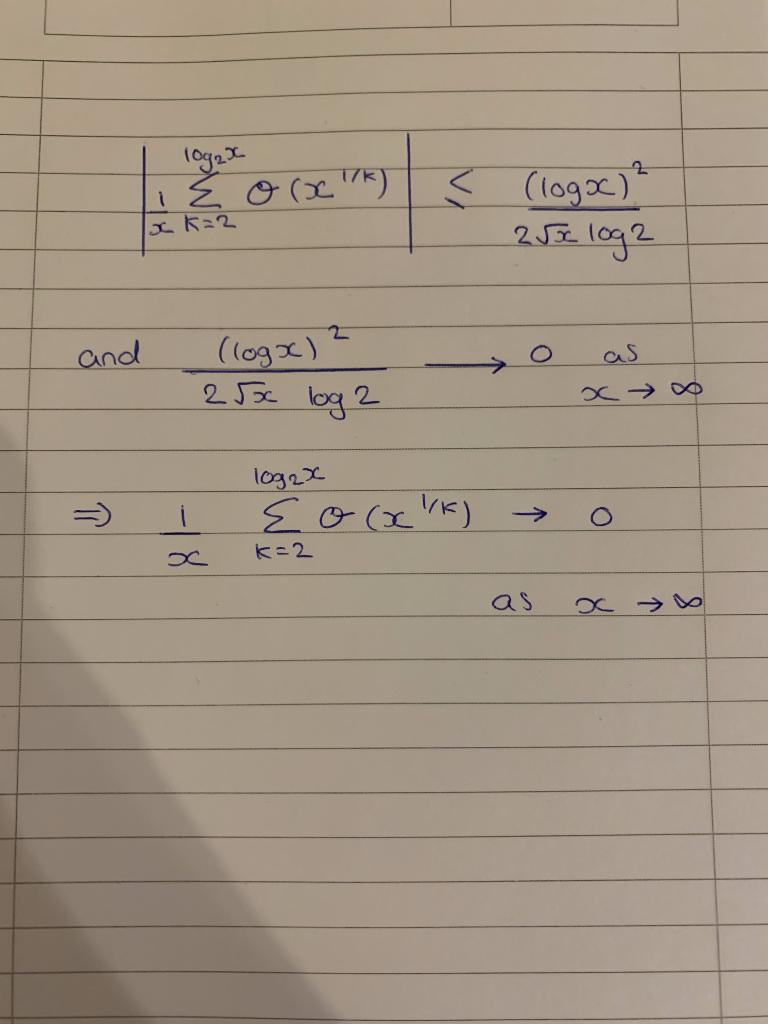 | 1/x ∑_{k=2}^{log₂x} θ(x^{1/k}) | ≤ (logx)² / 2√x log2
and (logx)² / 2√x log2 → 0 as x → ∞
⇒ 1/x ∑_{k=2}^{log₂x} θ(x^{1/k}) → 0
as x → ∞